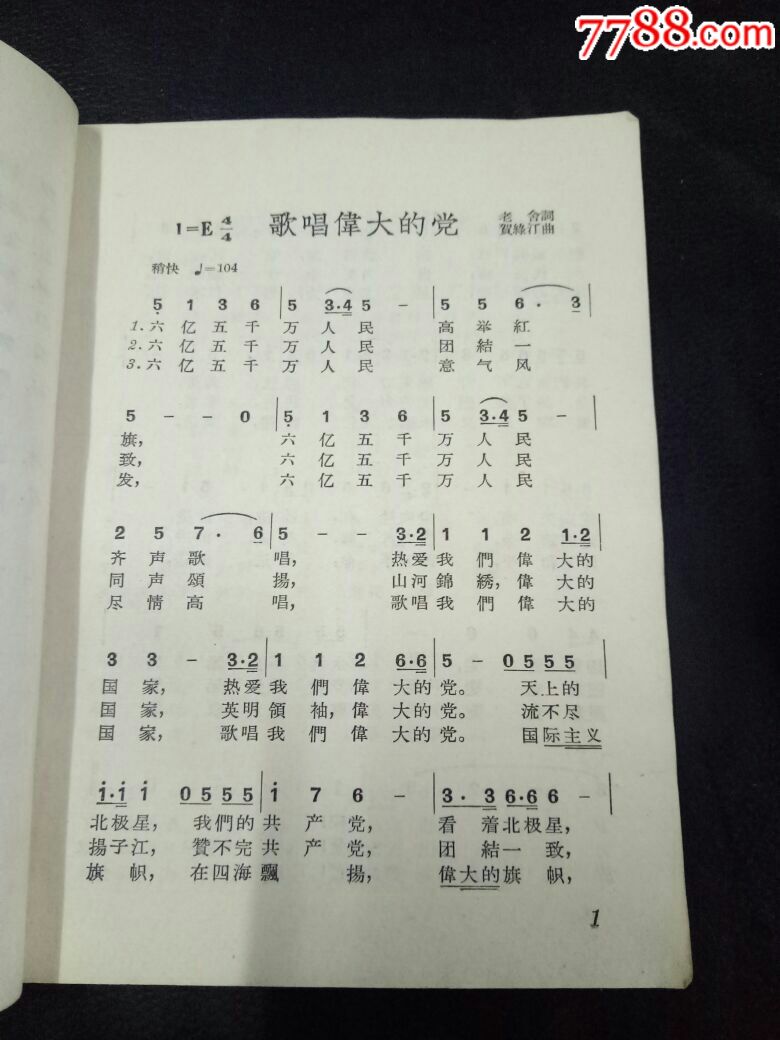 7788.com
1=E 4/4 歌唱偉大的党 老舍詞
賀綠汀曲
稍快 ♩=104
5̣ 1 3 6 | 5 3·4 5 - | 5 5 6· 3 |
1.六亿五千万人民 高举紅
2.六亿五千万人民 团結一
3.六亿五千万人民 意气风
5 - - 0 | 5̣ 1 3 6 | 5 3·4 5 - |
旗, 六亿五千万人民
致, 六亿五千万人民
发, 六亿五千万人民
2 5 7· 6 | 5 - - 3·2 | 1 1 2 1·2 |
齐声歌唱, 热爱我們偉大的
同声頌揚, 山河錦綉,偉大的
尽情高唱, 歌唱我們偉大的
3 3 - 3·2 | 1 1 2 6·6 | 5 - 0555 |
国家, 热爱我們偉大的党。 天上的
国家, 英明領袖,偉大的党。 流不尽
国家, 歌唱我們偉大的党。 国际主义
i·i i 0555 | i 7 6 - | 3· 3 6·6 6 - |
北极星, 我們的共产党, 看着北极星,
揚子江, 贊不完共产党, 团結一致,
旗帜, 在四海飄揚, 偉大的旗帜,
1